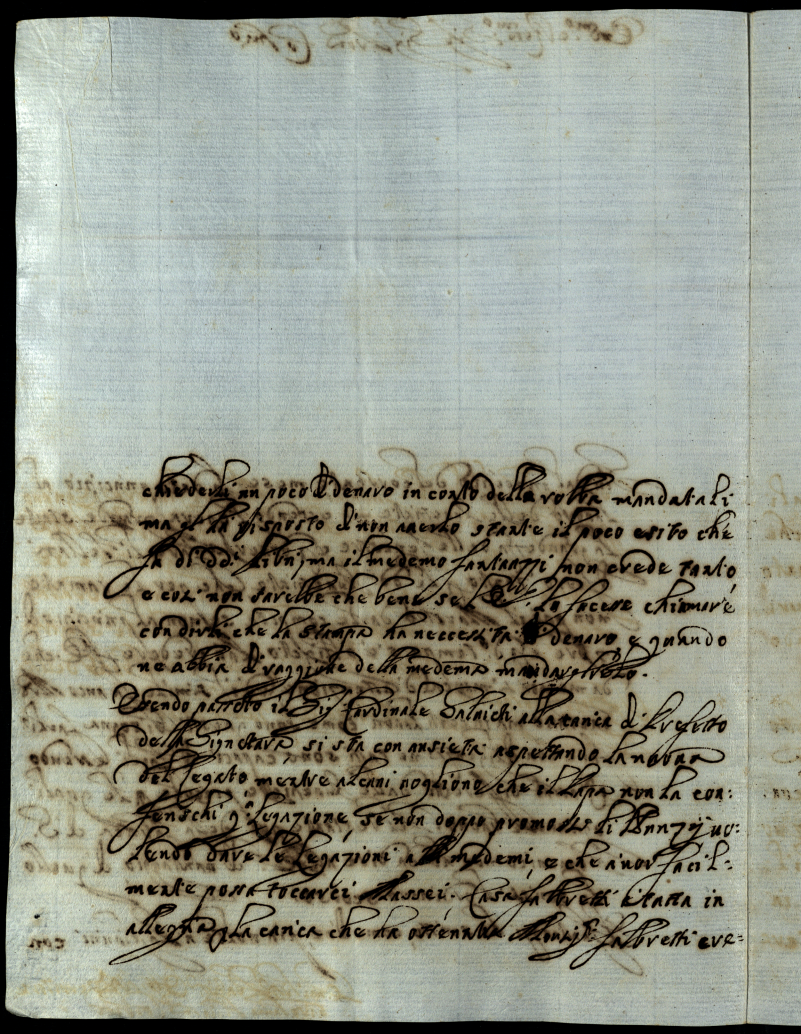 chiederli un poco di denaro in conto della robba mandatali
ma gl'ha risposto di non averlo stante il poco esito che
fa di dd. libri, ma il medemo Fantauzzi non crede tanto
e così non sarebbe che bene se lo facesse chiamare
con dirli che la stampa ha neccessità di denaro e quando
ne abbia di raggione della medema mandarglielo.
Avendo passato il Sig. Cardinale alla carica di Prefetto
della Signatura si sta con ansietà aspettando la nuova
del legato mentre alcuni vogliono che il Papa non la con:
ferischi q.a legazione se non doppo promossi li Nunzij uo:
lendo dare le legazioni alli medemi, e che a noi facil:
mente possa toccarci Massei. Casa Fabretti è tutta in
allegria p. la carica che ha ottenuta Monsig.r Fabretti ere=